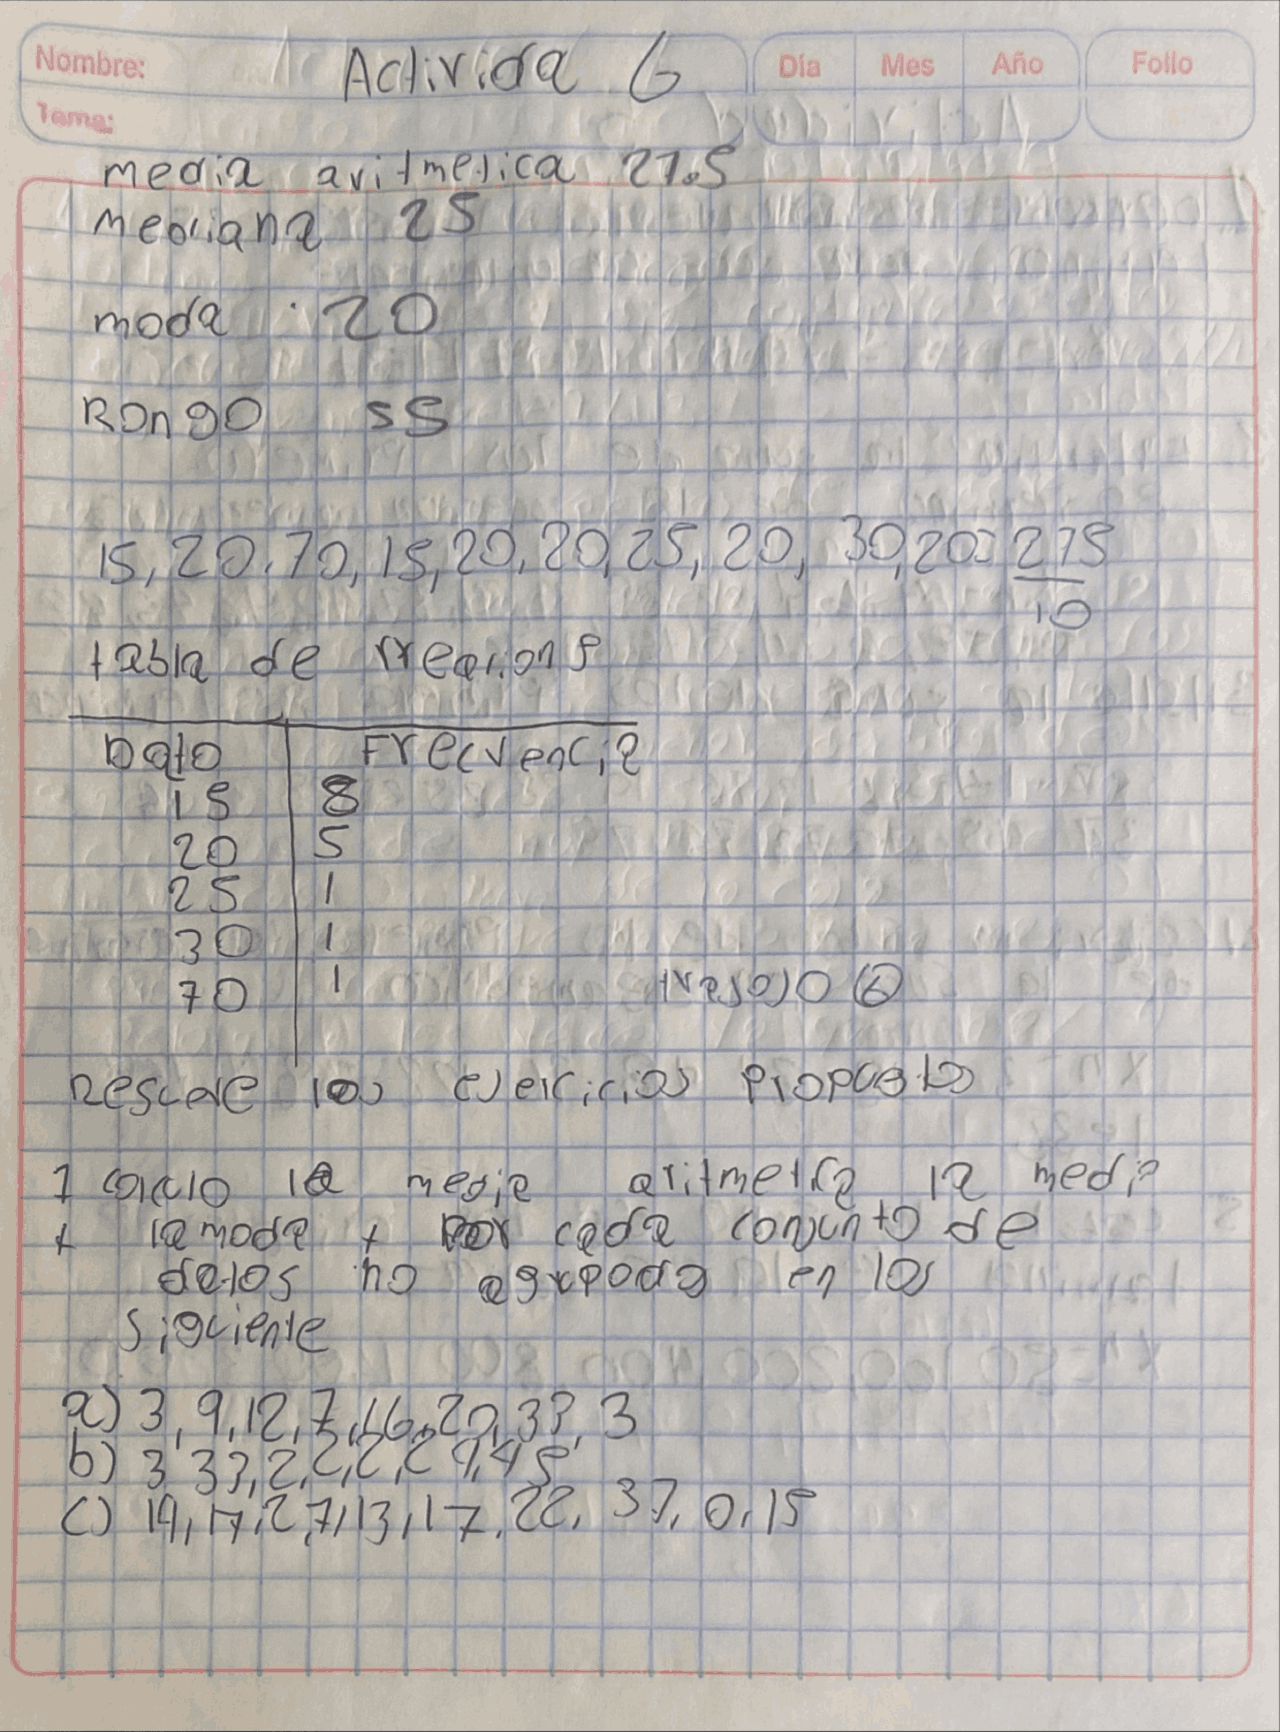 Nombre: Activida 6 Día Mes Año Folio
Tema:
media aritmetica 27.5
mediana 25
moda : 20
Rango 55
15, 20, 70, 15, 20, 20, 25, 20, 30, 20 = 275
10
tabla de
Dato Frecuencia
15 8
20 5
25 1
30 1
70 1 trabajo 6
Resuelve los ejercicios propuesto
1 calculo la media aritmetica la media
y la moda y por cada conjunto de
datos no agrupado en los
siguiente
a) 3, 9, 12, 7, 16, 20, 33, 3
b) 3, 33, 2, 2, 2, 2 9, 4 5
c) 19, 17, 2, 7, 13, 17, 22, 37, 0, 15